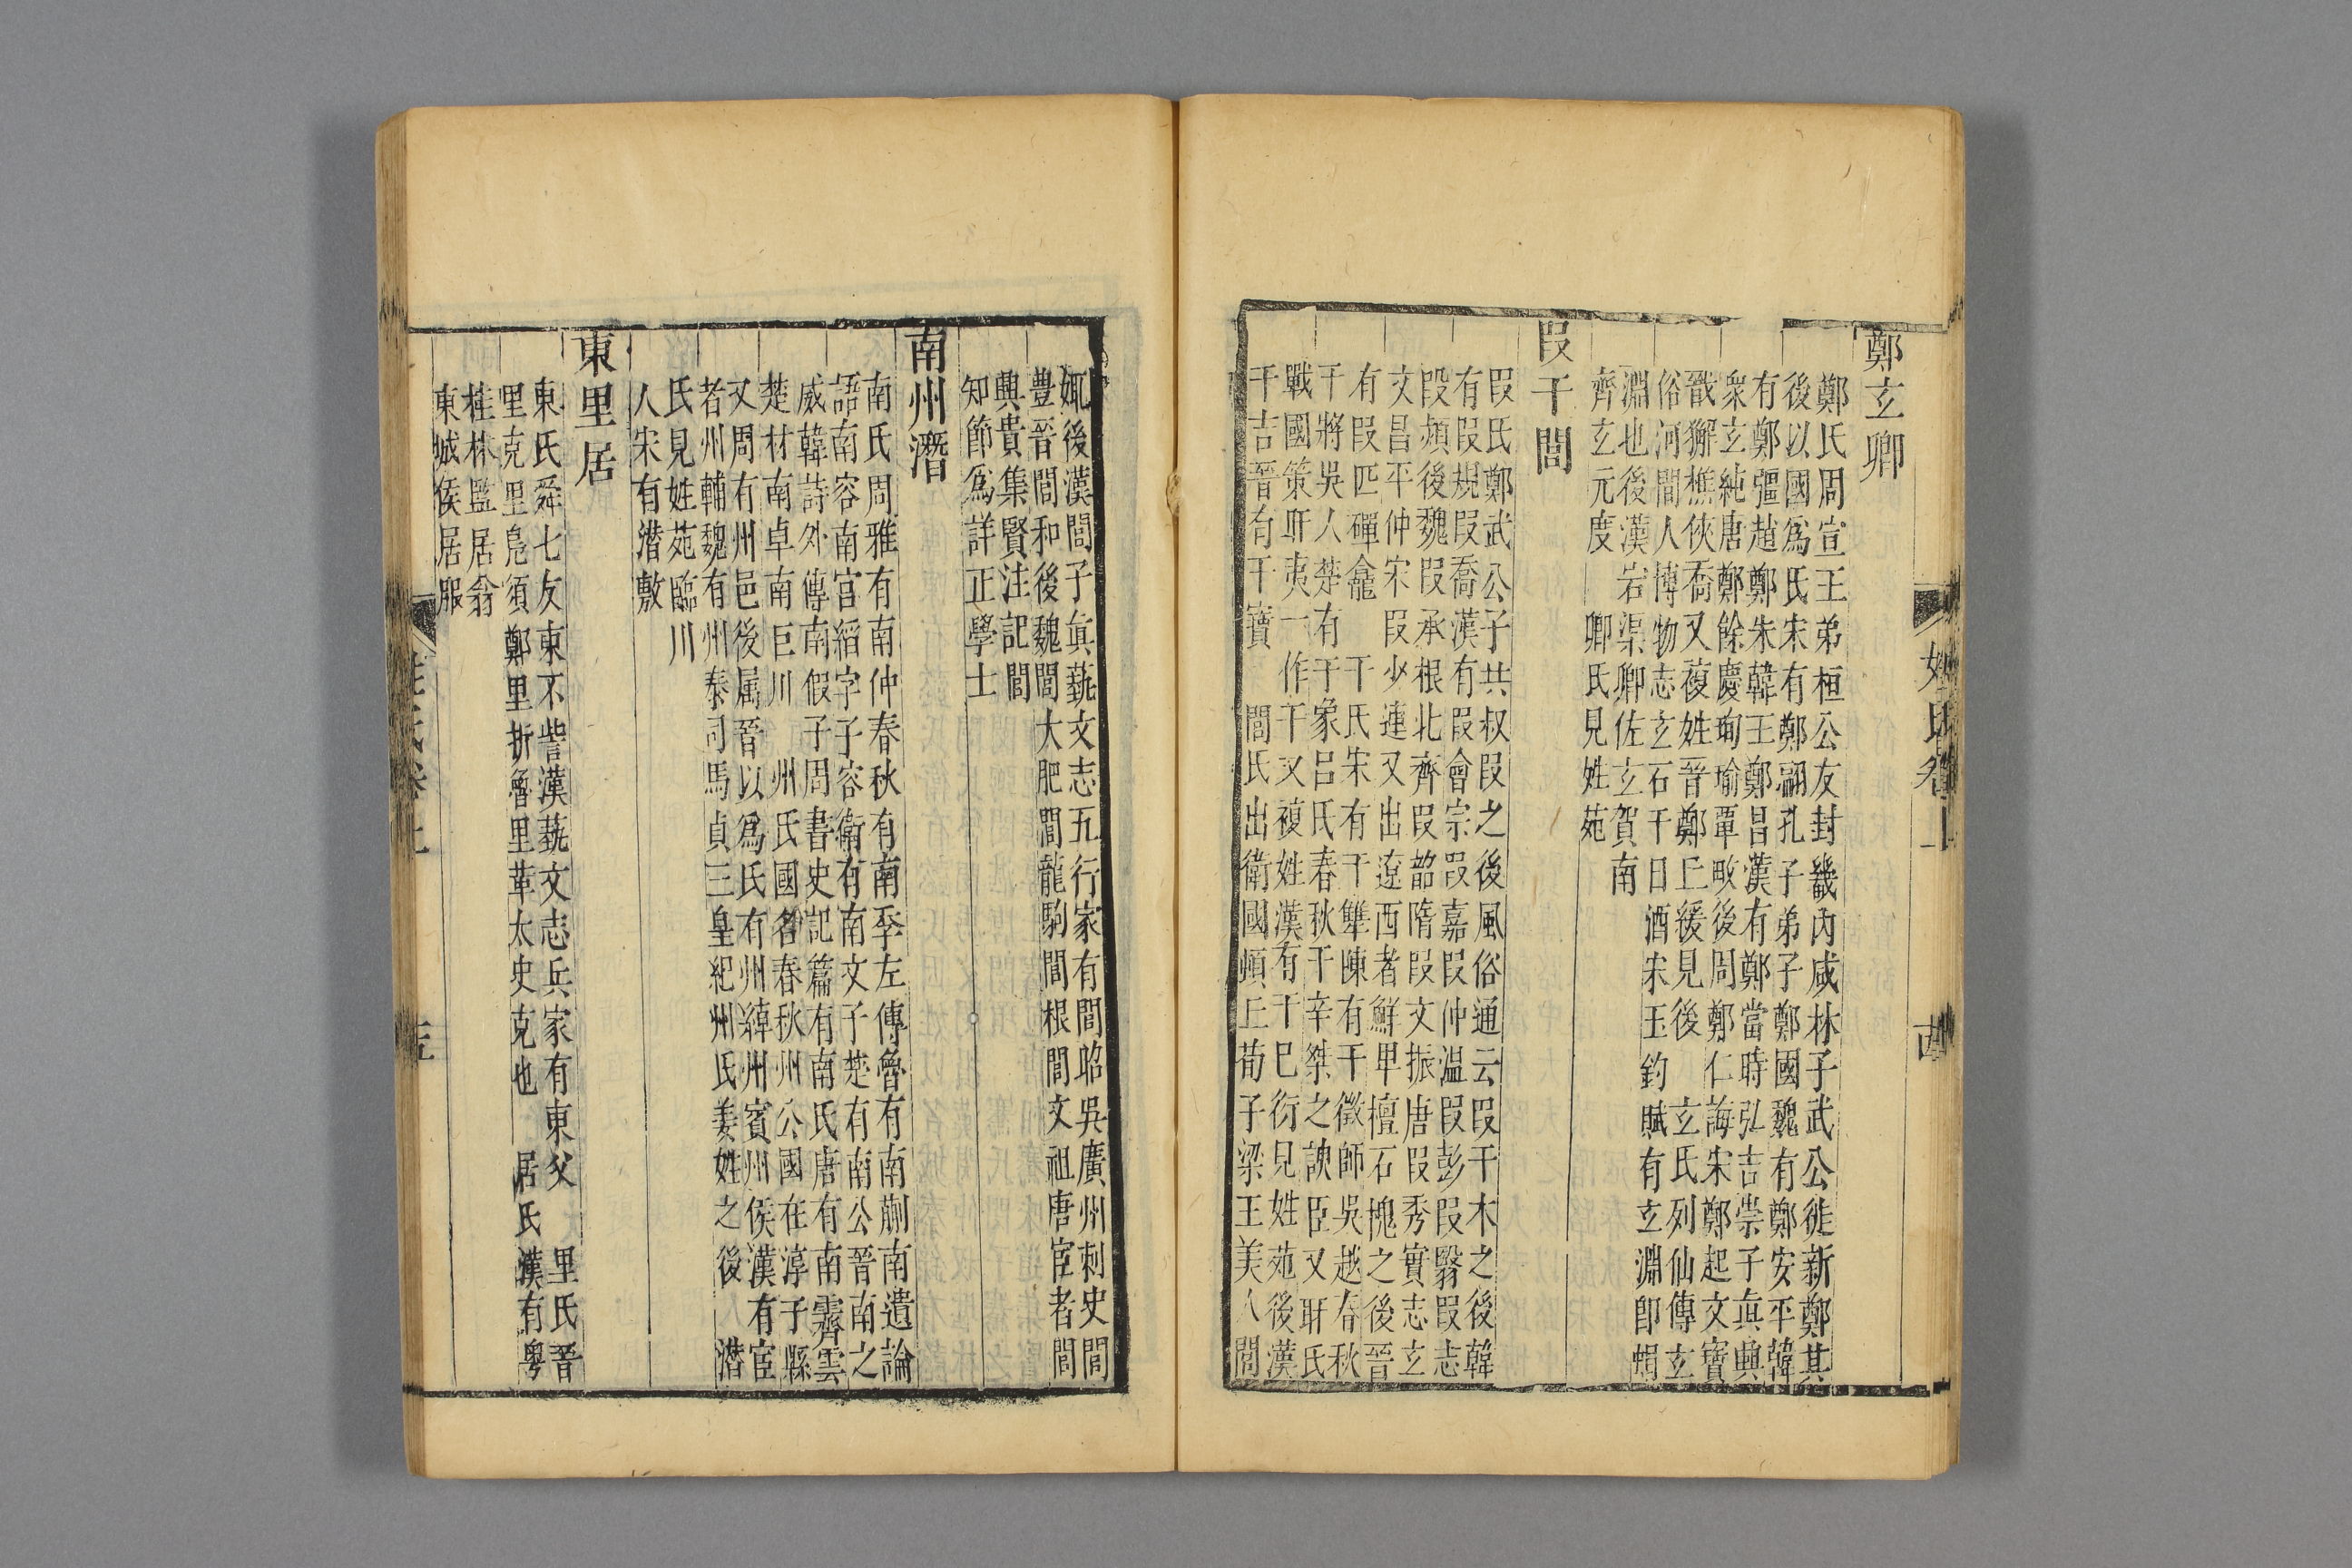 鄭玄卿
鄭氏周宣王弟桓公友封畿內咸林子武公徙新鄭其
後以國爲氏宋有鄭翩孔子弟子鄭國魏有鄭安平韓
有鄭彊趙鄭朱韓王鄭昌漢有鄭當時弘吉崇子眞興
衆玄純唐鄭餘慶珣瑜覃畋後周鄭仁誨宋鄭起文寶
戩獬樵俠喬又複姓晉鄭丘緩見後 玄氏列仙傳玄
俗河間人博物志玄石千日酒宋玉釣賦有玄淵卽蜎
淵也後漢岩渠卿佐玄賀南
齊玄元度 卿氏見姓苑
段干閭
段氏鄭武公子共叔段之後風俗通云段干木之後韓
有段規段喬漢有段會宗段嘉段仲温段彭段翳段志
段熲後魏段承根北齊段韶隋段文振唐段秀實志玄
文昌平仲宋段少連又出遼西者鮮卑檀石槐之後晉
有段匹磾龕 干氏宋有干犨陳有干徵師吳越春秋
干將吳人楚有干象呂氏春秋干辛桀之諛臣又邘氏
戰國策邘夷一作干又複姓漢有干巳衍見姓苑後漢
干吉晉有干寶 閭氏出衛國頓丘荀子梁王美人閭
娵後漢閭子眞藝文志五行家有閭昭吳廣州刺史閭
豊晉閭和後魏閭大肥閭龍駒閭根閭文祖唐宦者閭
興貴集賢注記閭
知節爲詳正學士
南州潛
南氏周雅有南仲春秋有南季左傳魯有南蒯南遺論
語南容南宮縚字子容衛有南文子楚有南公晉南之
威韓詩外傳南假子周書史記篇有南氏唐有南霽雲
楚材南卓南巨川 州氏國名春秋州公國在淳于縣
又周有州邑後屬晉以爲氏有州綽州賓州侯漢有宦
者州輔魏有州泰司馬貞三皇紀州氏姜姓之後 潛
氏見姓苑臨川
人宋有潛敷
東里居
東氏舜七友東不訾漢藝文志兵家有東父 里氏晉
里克里鳧須鄭里析魯里革太史克也 居氏漢有粤
桂林監居翁
東城侯居服